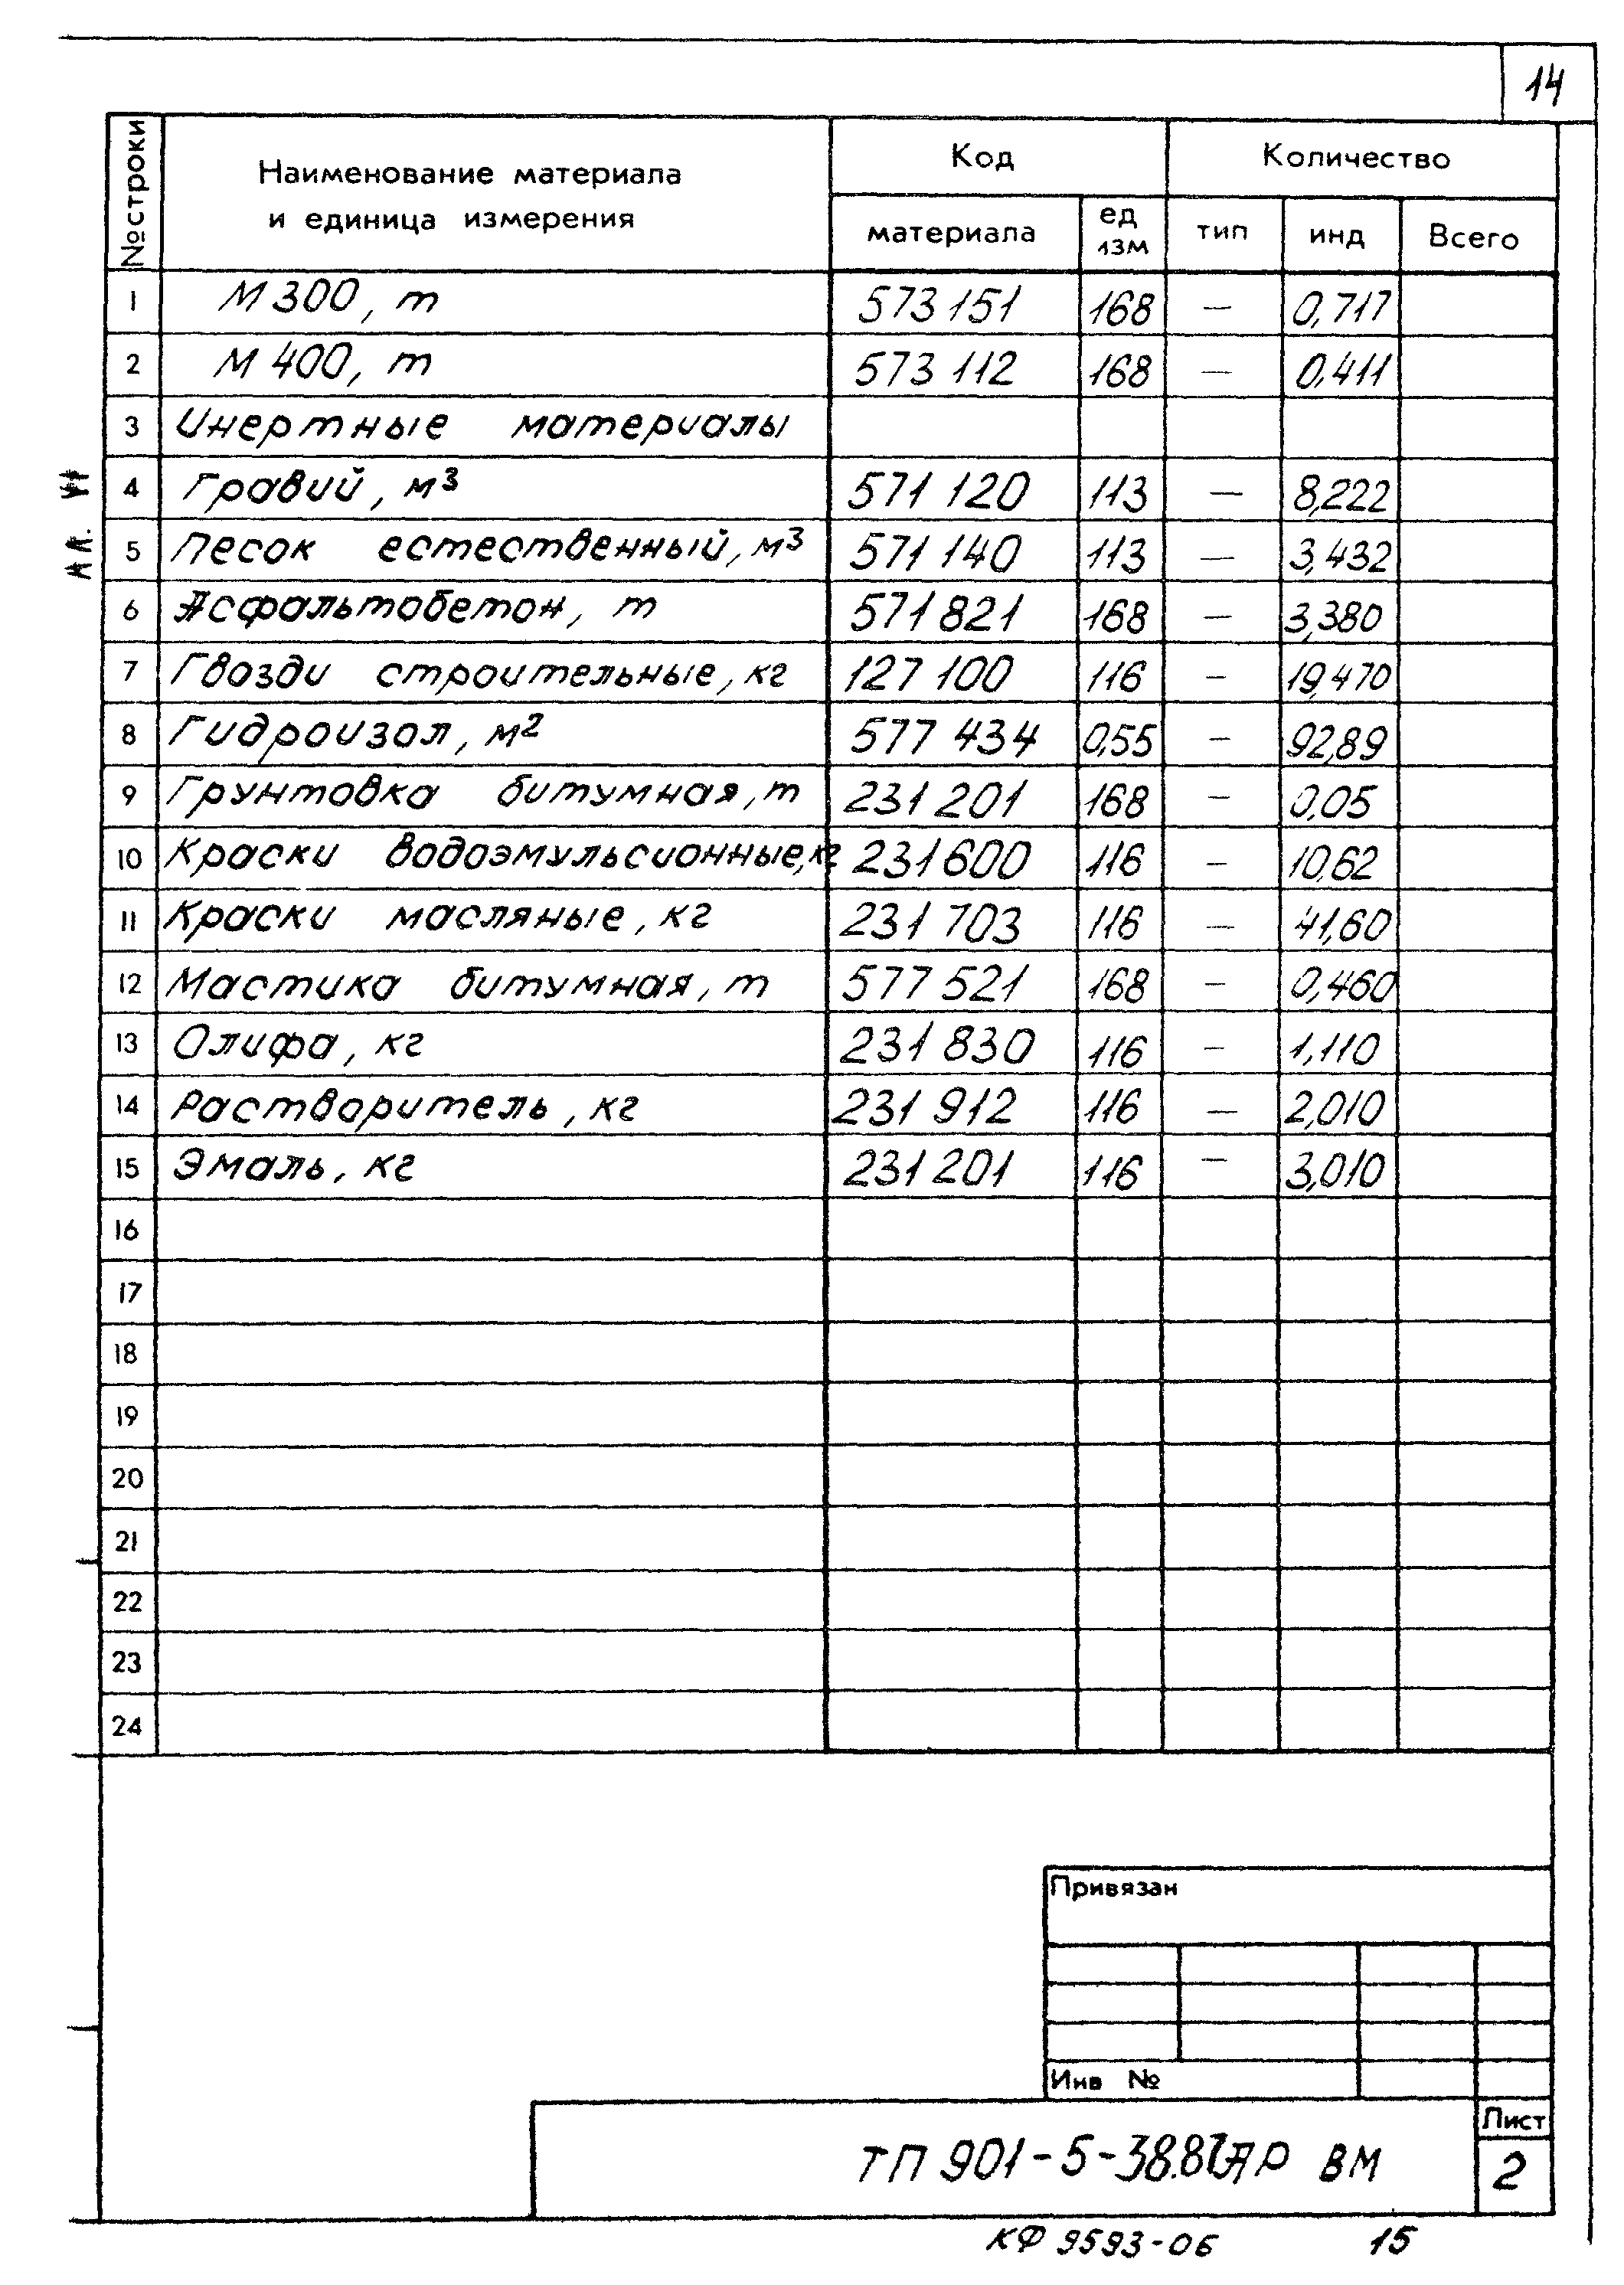 14
№ строки
Наименование материала
и единица измерения
Код
Количество
материала
ед
изм
тип
инд
Всего
1 М 300, т 573 151 168 — 0,717
2 М 400, т 573 112 168 — 0,411
3 Инертные материалы
4 Гравий, м³ 571 120 113 — 8,222
5 Песок естественный, м³ 571 140 113 — 3,432
6 Асфальтобетон, т 571 821 168 — 3,380
7 Гвозди строительные, кг 127 100 116 — 19,470
8 Гидроизол, м² 577 434 0,55 — 92,89
9 Грунтовка битумная, т 231 201 168 — 0,05
10 Краски водоэмульсионные, кг 231 600 116 — 10,62
11 Краски масляные, кг 231 703 116 — 41,60
12 Мастика битумная, т 577 521 168 — 0,460
13 Олифа, кг 231 830 116 — 1,110
14 Растворитель, кг 231 912 116 — 2,010
15 Эмаль, кг 231 201 116 — 3,010
16
17
18
19
20
21
22
23
24
Ал. VI
Привязан
Инв №
ТП 901-5-38.87 АР ВМ
Лист
2
КФ 9593-06 15